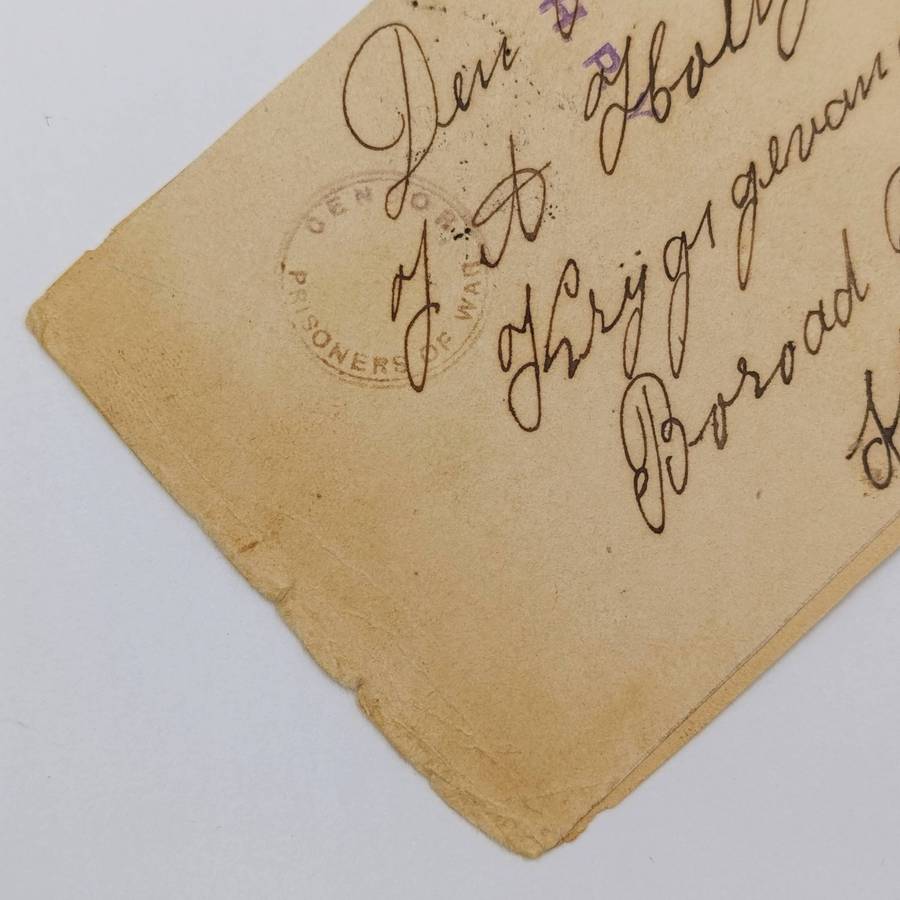 Den
J A Holtz
Krijgsgevan
Boroad
CENSOR
PRISONERS OF WAR
H
P